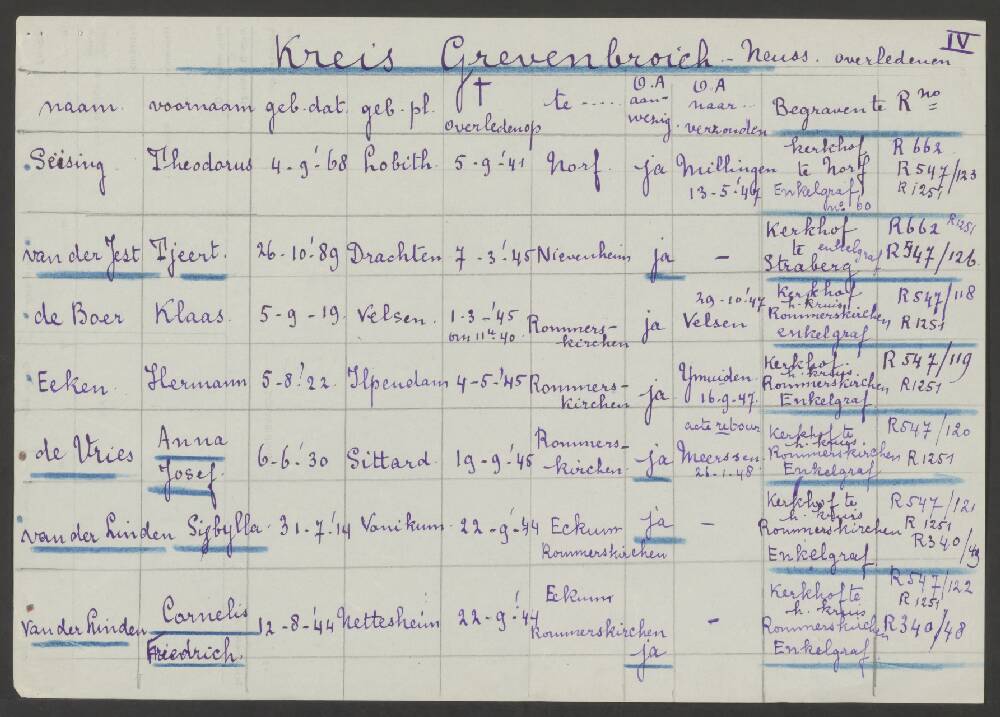 IV
Kreis Grevenbroich - Neuss. overledenen
naam. voornaam geb. dat. geb. pl. † overledenop te ..... O.A aan-wezig. O.A naar. verzonden Begraven te R no
Seësing Theodorus 4-9-'68 Lobith. 5-9-'41 Norf. ja Millingen 13-5-'47 kerkhof te Norf Enkelgraf no 60 R 662 R 547/123 R 1251
van der Jest Tjeert. 26-10-'89 Drachten 7-3-'45 Nievenheim ja - Kerkhof te enkelgraf Straberg R 662 R 1251 R 547/126
de Boer Klaas. 5-9-19. Velsen. 1-3-'45 om 11 u 40. Rommers-kirchen ja 29-10-'47 Velsen Kerkhof h. kruis Rommerskirchen enkelgraf R 547/118 R 1251
Eeken. Hermann 5-8-'22. Ilpendam 4-5-'45 Rommers-kirchen ja Ymuiden 16-9-47. Kerkhof. h. kruis. Rommerskirchen Enkelgraf R 547/119 R 1251
de Vries Anna Josef. 6-6-'30 Sittard. 19-9-'45 Rommers-kirchen ja acte rebour Meerssen 26-1-48. Kerkhof te h. kruis. Rommerskirchen Enkelgraf R 547/120 R 1251
van der Linden Sijbylla 31-7-'14 Vanikum. 22-9-'44 Eckum Rommerskirchen ja - Kerkhof te h. kruis Rommerskirchen Enkelgraf R 547/121 R 1251 R 340/49
van der Linden Cornelis Friedrich. 12-8-'44 Nettesheim 22-9-'44 Eckum Rommerskirchen ja - Kerkhof te h. kruis Rommerskirchen Enkelgraf R 547/122 R 1251 R 340/48